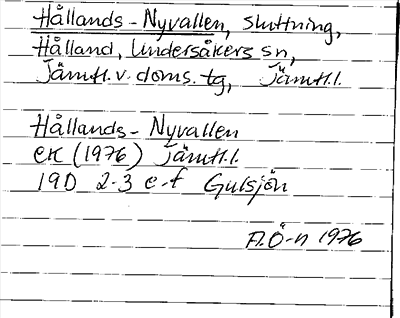 Hållands-Nyvallen, sluttning,
Hålland, Undersåkers sn,
Jämtl. v. doms. tg, Jämtl. l.
Hållands-Nyvallen
ek (1976) Jämtl. l.
19D 2-3 e-f Gulsjön
Fl. Ö-n 1976